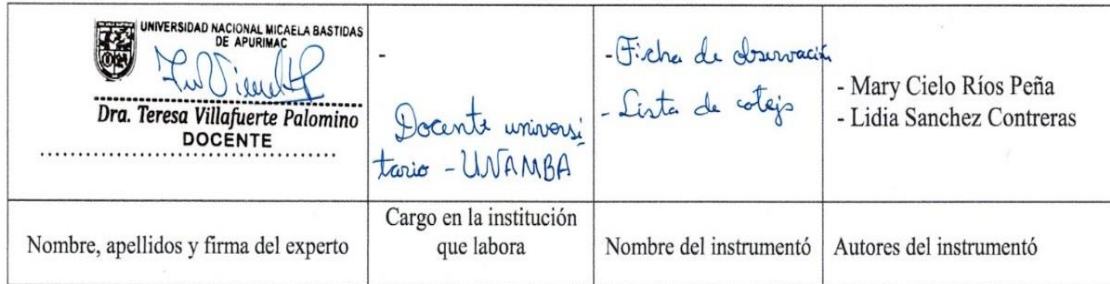 UNIVERSIDAD NACIONAL MICAELA BASTIDAS
DE APURIMAC
Dra. Teresa Villafuerte Palomino
DOCENTE
-
Docente universi
tario - UNAMBA
- Ficha de observación
- Lista de cotejo
- Mary Cielo Ríos Peña
- Lidia Sanchez Contreras
Nombre, apellidos y firma del experto
Cargo en la institución
que labora
Nombre del instrumentó
Autores del instrumentó